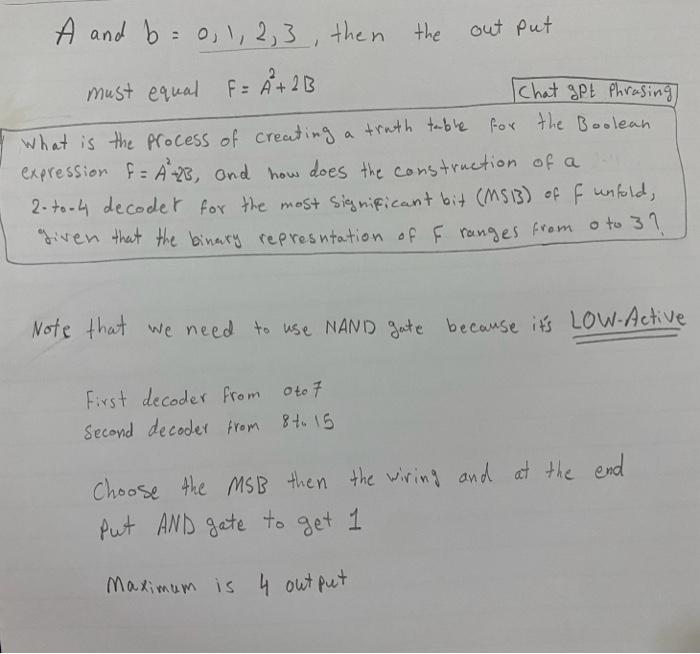 A and b = 0, 1, 2, 3, then the out put
must equal F = A² + 2B
Chat gpt Phrasing
What is the process of creating a truth table for the Boolean
expression F = A²+2B, and how does the construction of a
2-to-4 decoder for the most significant bit (MSB) of F unfold,
given that the binary represntation of F ranges from 0 to 3?
Note that we need to use NAND gate because it's LOW-Active
First decoder from 0 to 7
Second decoder from 8 to 15
Choose the MSB then the wiring and at the end
put AND gate to get 1
Maximum is 4 output